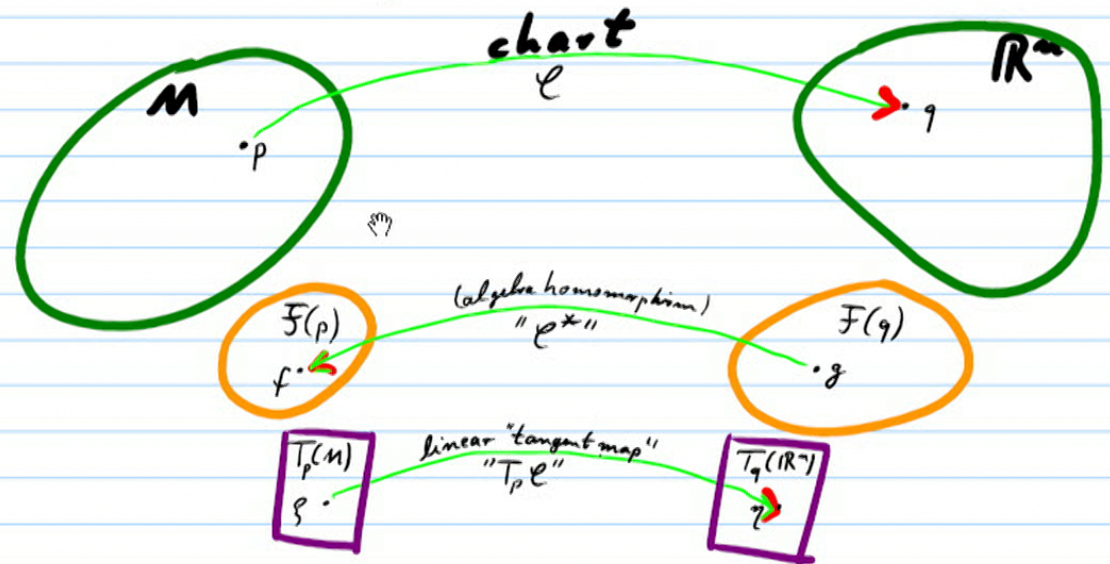 chart
M
ℝⁿ
φ
p
q
(algebra homomorphism)
"φ*"
F(p)
F(q)
f
g
linear "tangent map"
"Tₚφ"
Tₚ(M)
T_q(ℝⁿ)
ξ
η